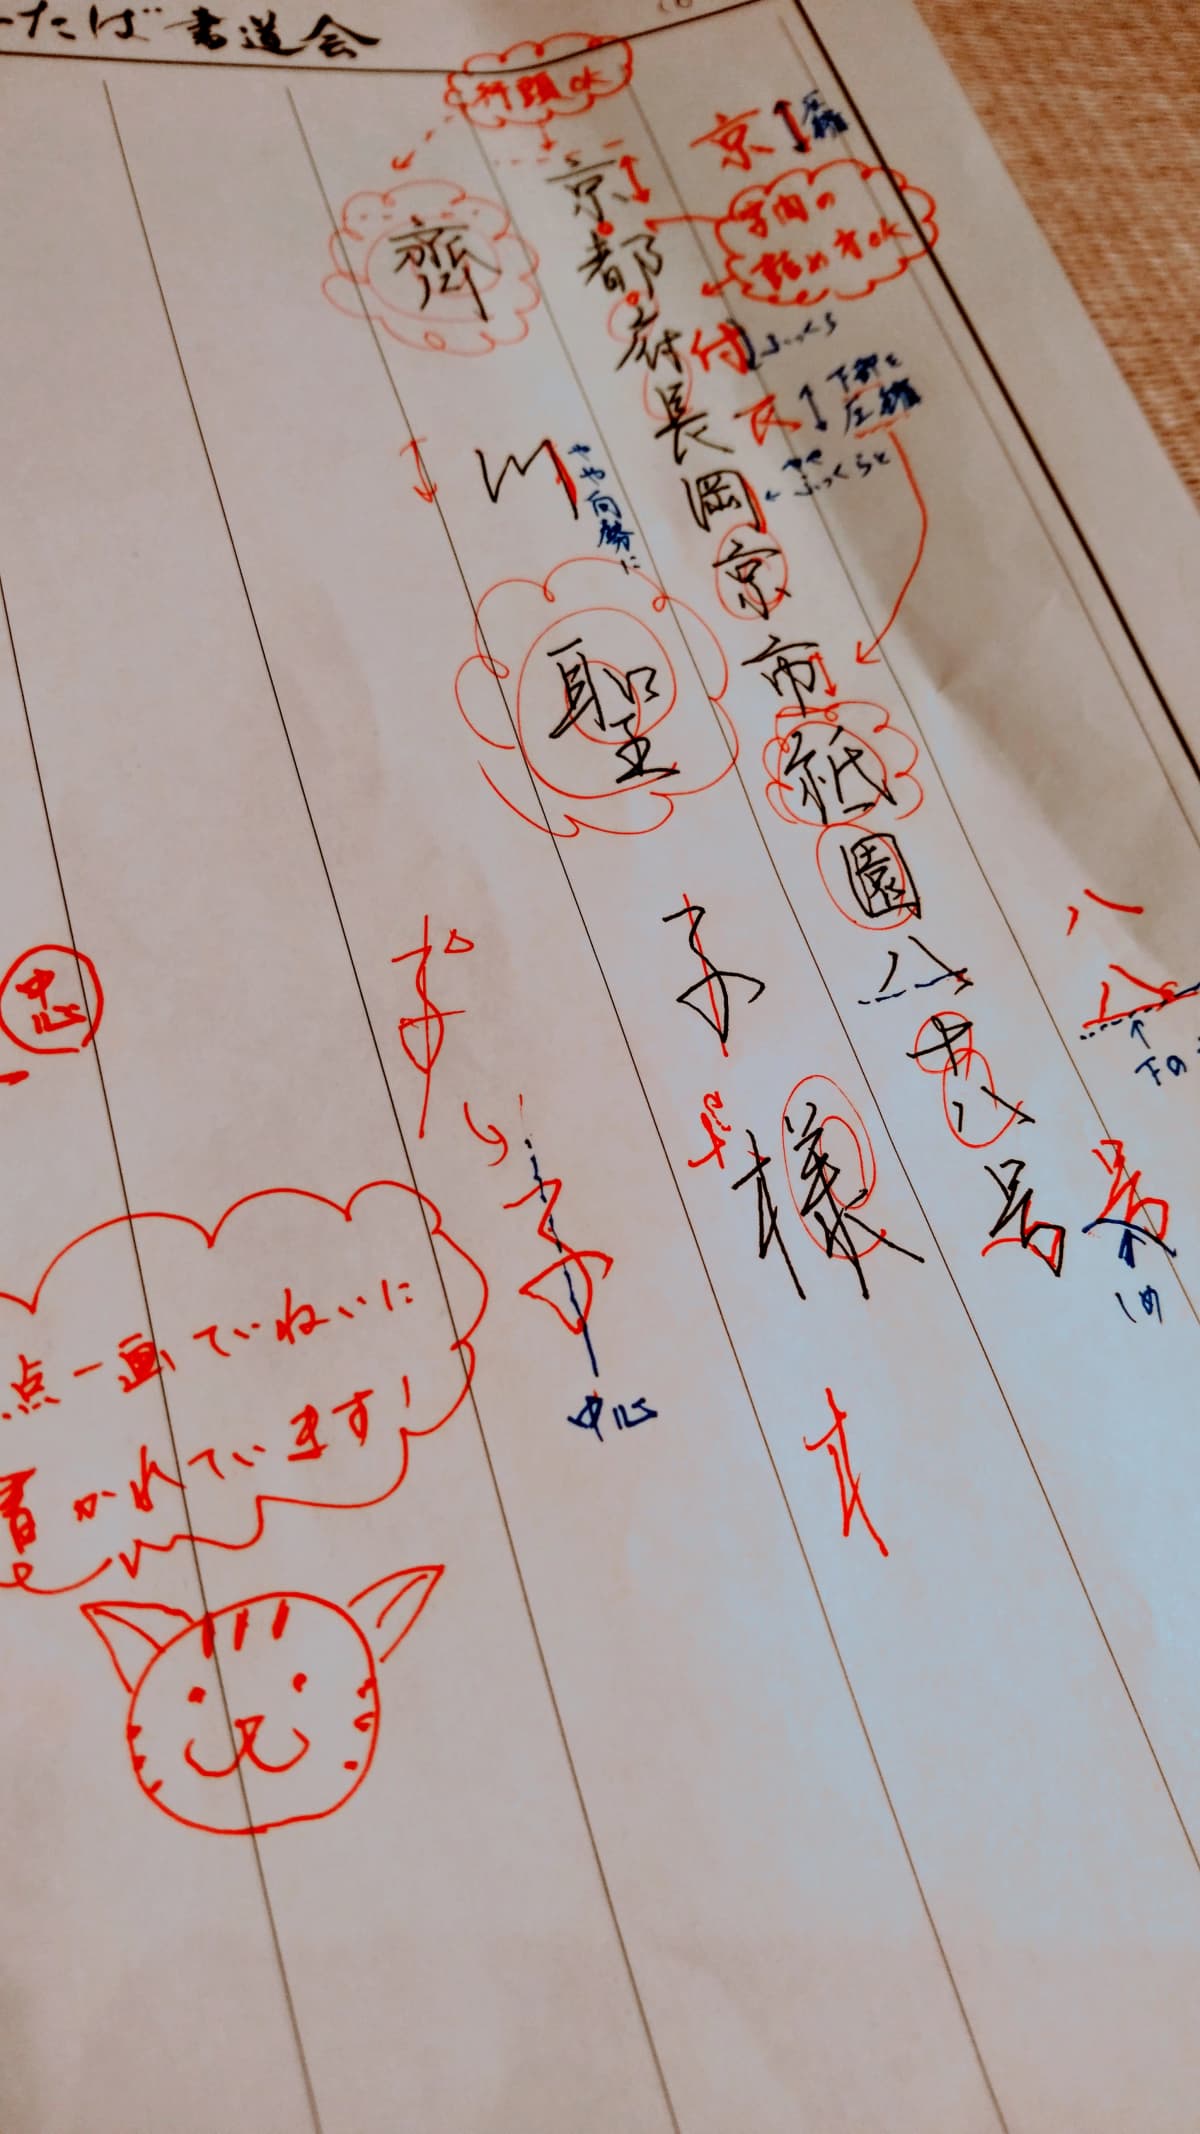 たば書道会
行頭OK
京
圧縮
字間の
詰め方OK
京都府長岡京市祇園八十八号
付
ふっくら
下部を
圧縮
やや
ふっくらと
八
八
下の
号
しめ
齊川聖子様
やや向勢に
子
子
中心
中心
点一画ていねいに
書かれています!